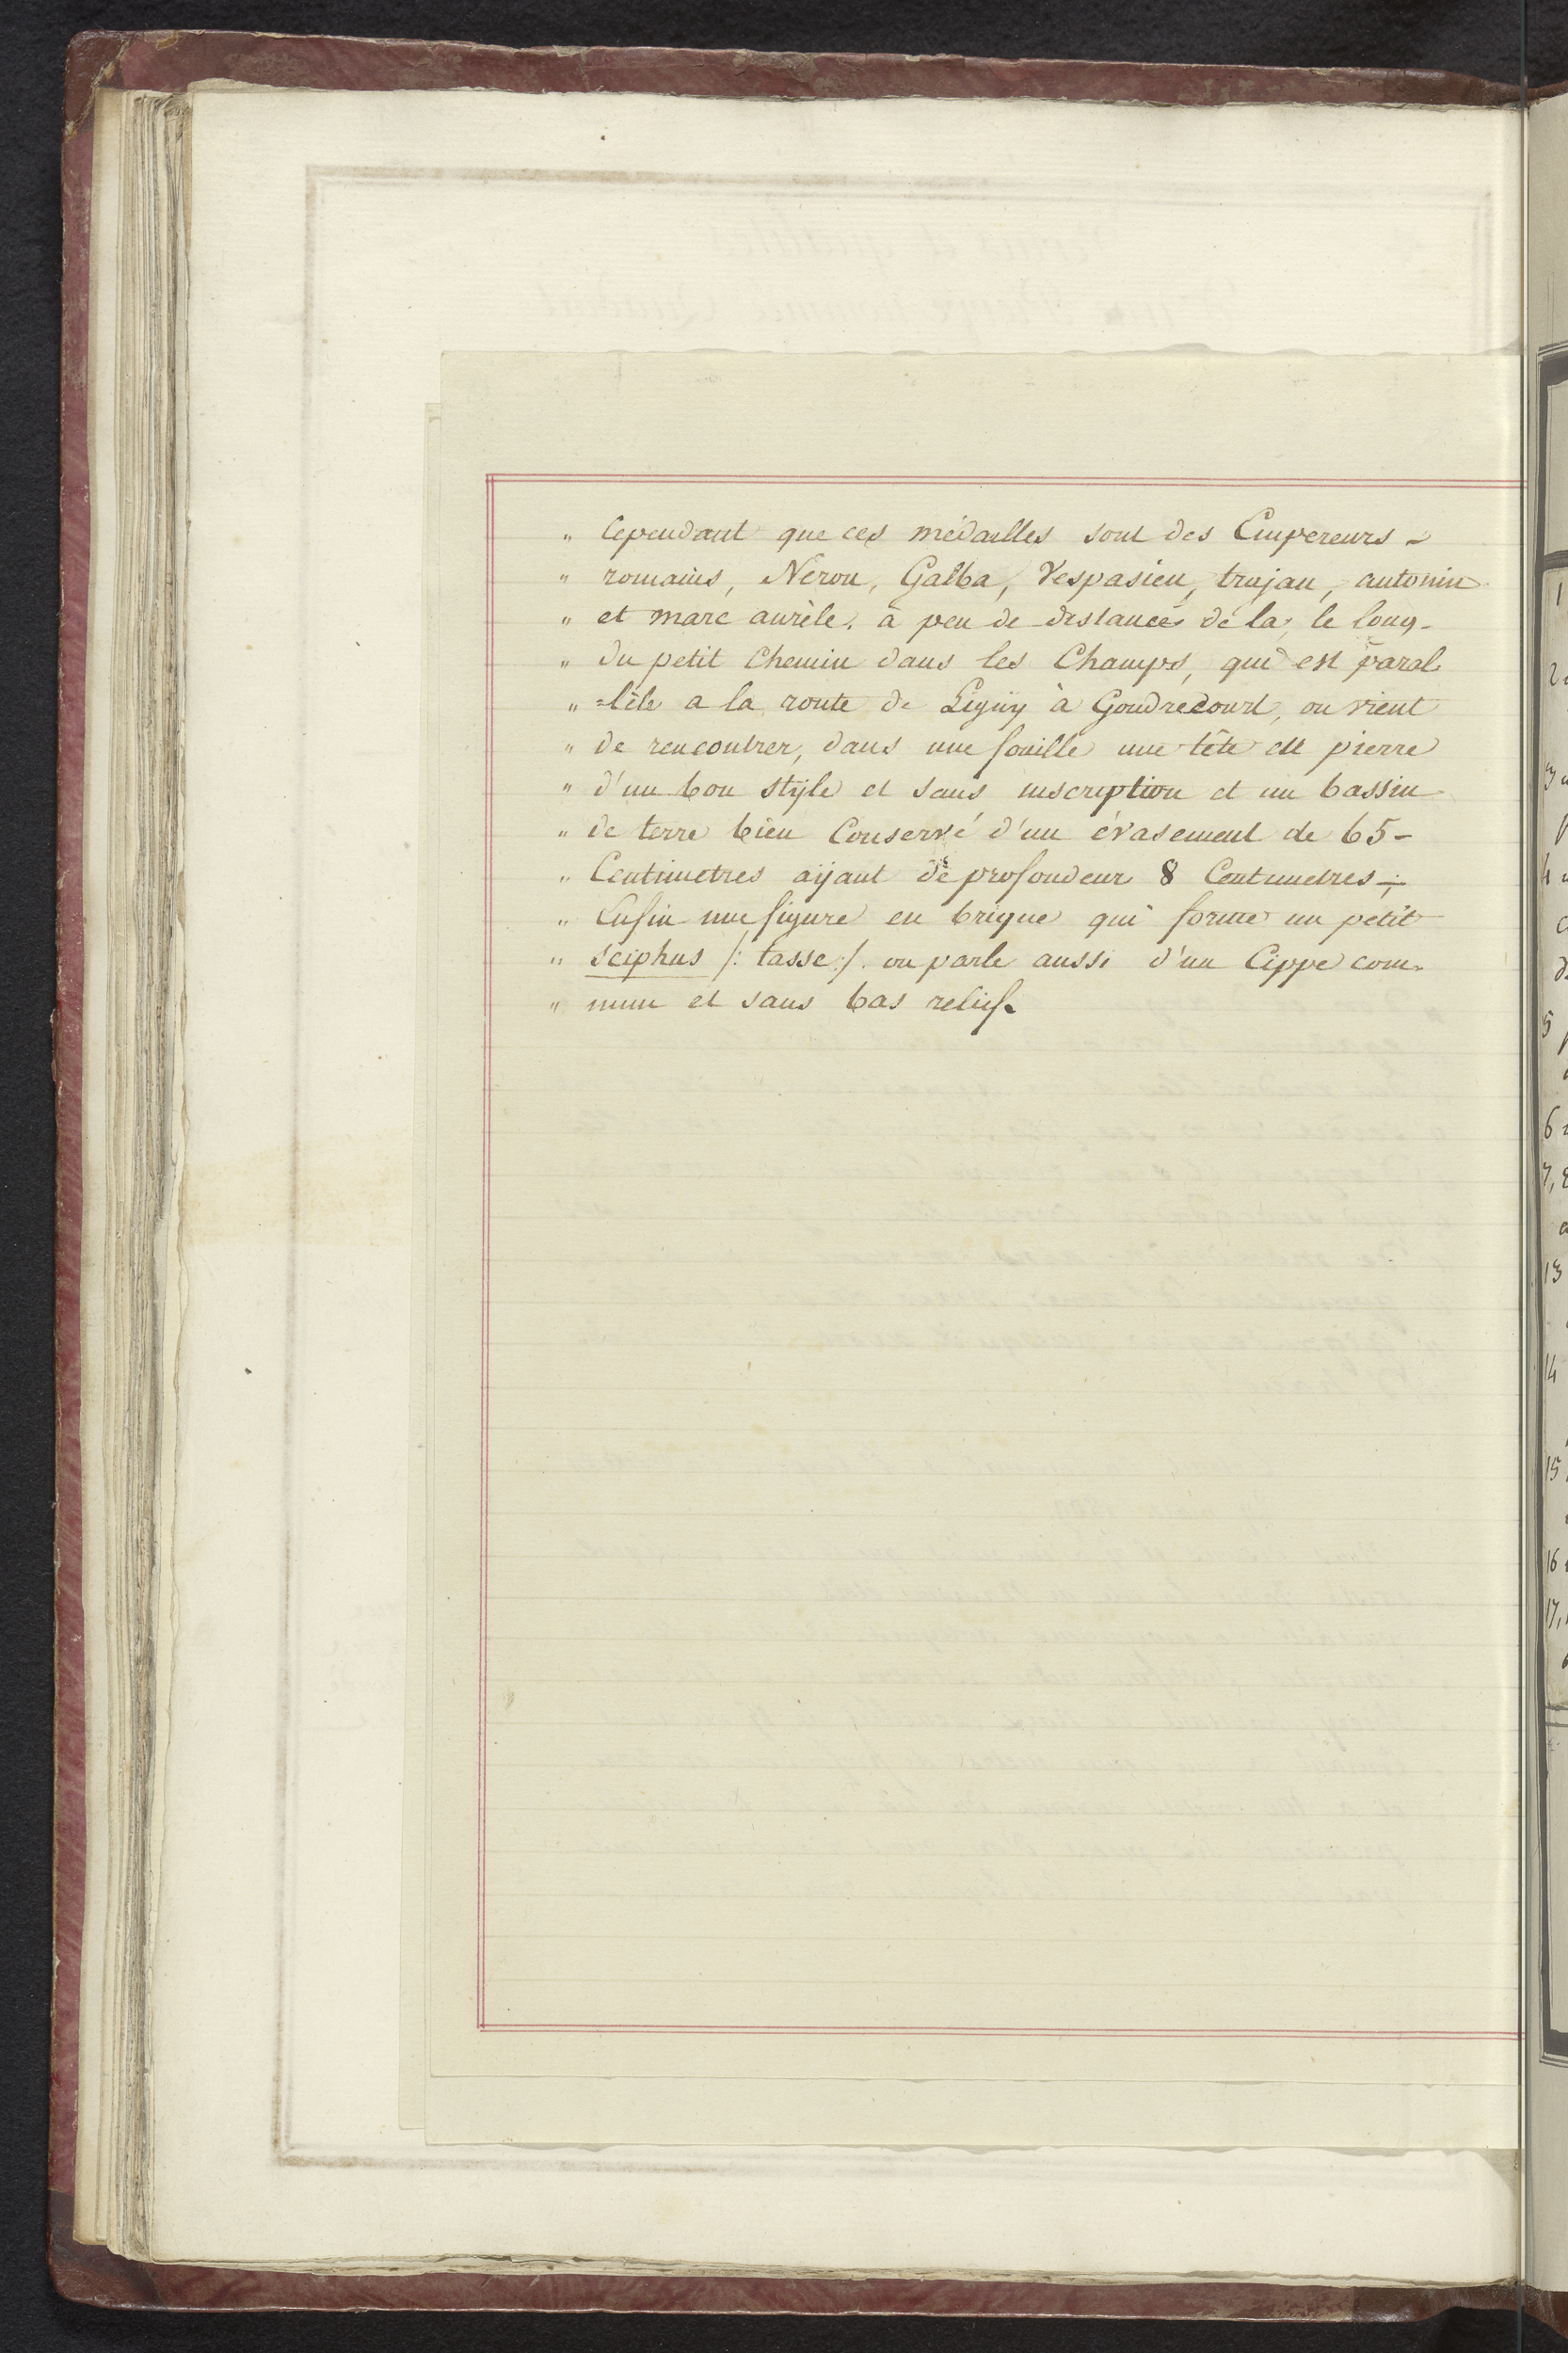 " Cependant que ces médailles sont des Empereurs -
" romains, Néron, Galba, Vespasien, trajan, antonin
" et marc aurèle. à peu de distance de là, le long-
" du petit Chemin dans les Champs, qui est paral
" =lèle a la route de Ligny à Goudrecourt, on vient
" de rencontrer, dans une fouille une tête en pierre
" d'un bon style et sans inscription et un bassin
" de terre bien Conservé d'un évasement de 65-
" Centimetres aÿant de profondeur 8 Centimetres ;
" Enfin une figure en brique qui forme un petit
" sciphus /: tasse :/. on parle aussi d'un Cippe com-
" mun et sans bas relief.
1
2
3
4
5
6
7, 8
13
14
15
16
17,